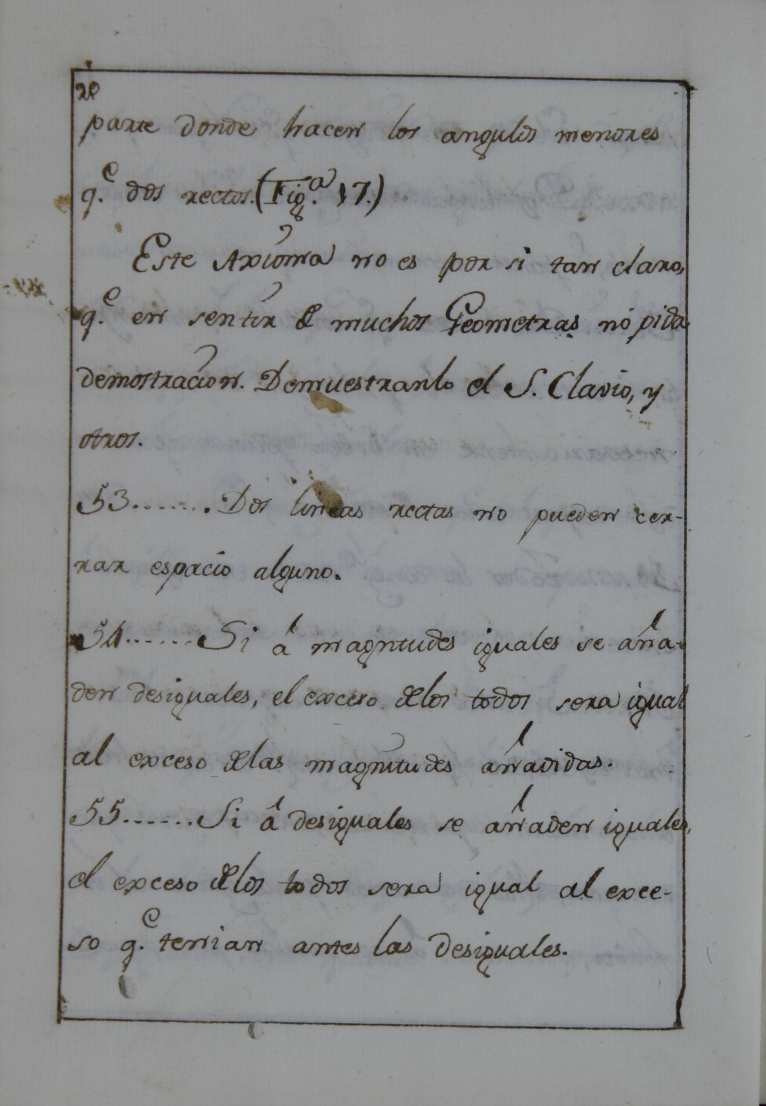 28
parte donde hacen los angulos menores
q.e dos rectos. (Fig.a 17.)
Este Axioma no es por si tan claro,
q.e en sentir de muchos Geometras no pida
demostracion. Demuestranlo el S. Clavio, y
otros.
53....... Dos lineas rectas no pueden cer-
rar espacio alguno.
54...... Si á magnitudes iguales se aña-
den desiguales, el exceso delos todos sera igual
al exceso delas magnitudes añadidas.
55...... Si á desiguales se añaden iguales,
el exceso delos todos sera igual al exce-
so q.e tenian antes las desiguales.